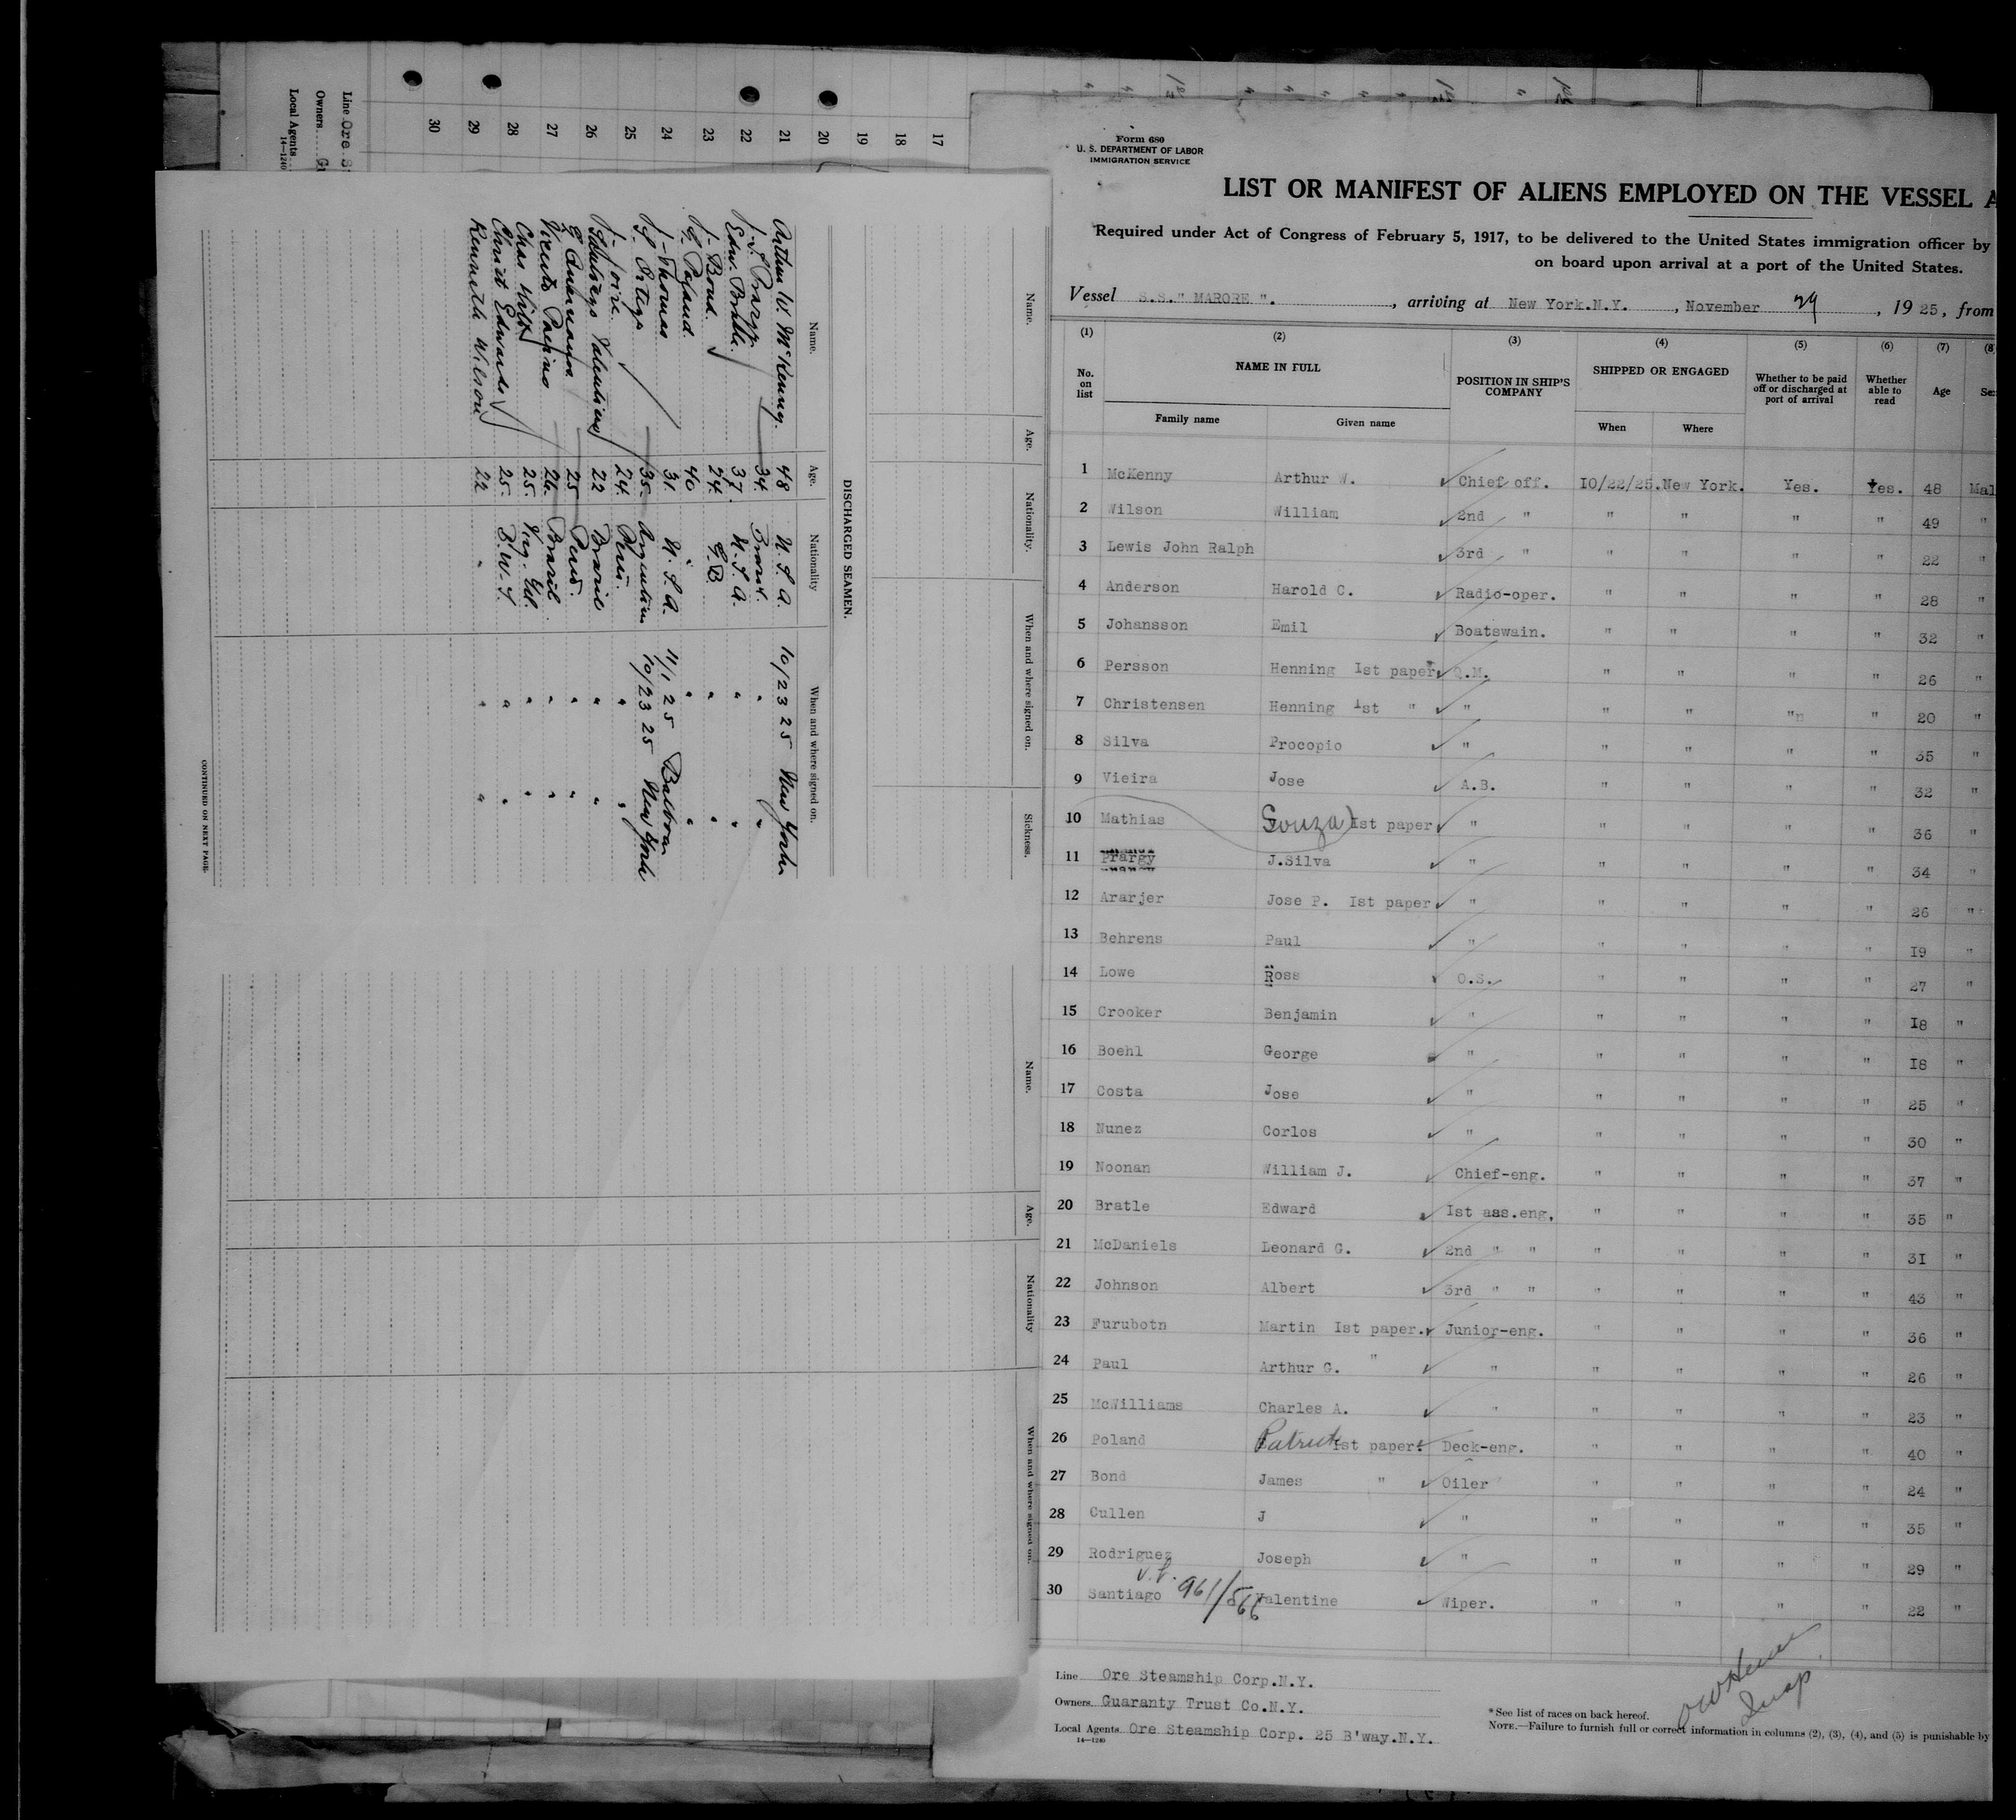 Form 680
U. S. DEPARTMENT OF LABOR
IMMIGRATION SERVICE
LIST OR MANIFEST OF ALIENS EMPLOYED ON THE VESSEL A
Required under Act of Congress of February 5, 1917, to be delivered to the United States immigration officer by
on board upon arrival at a port of the United States.
Vessel S.S." MARORE ". , arriving at New York.N.Y. , November 29 , 1925, from
(1) (2) (3) (4) (5) (6) (7) (8
No. on list NAME IN FULL POSITION IN SHIP'S COMPANY SHIPPED OR ENGAGED Whether to be paid off or discharged at port of arrival Whether able to read Age Se
Family name Given name When Where
1 McKenny Arthur W. Chief off. 10/22/25. New York. Yes. Yes. 48 Mal
2 Wilson William 2nd " " " " " 49 "
3 Lewis John Ralph 3rd " " " " " 22 "
4 Anderson Harold C. Radio-oper. " " " " 28 "
5 Johansson Emil Boatswain. " " " " 32 "
6 Persson Henning Ist paper Q.M. " " " " 26 "
7 Christensen Henning Ist " " " " " " 20 "
8 Silva Procopio " " " " " 35 "
9 Vieira Jose A.B. " " " " 32 "
10 Mathias Souza Ist paper " " " " " 36 "
11 Prargy J.Silva " " " " " 34 "
12 Ararjer Jose P. Ist paper " " " " " 26 "
13 Behrens Paul " " " " " I9 "
14 Lowe Ross O.S. " " " " 27 "
15 Crooker Benjamin " " " " " I8 "
16 Boehl George " " " " " I8 "
17 Costa Jose " " " " " 25 "
18 Nunez Corlos " " " " " 30 "
19 Noonan William J. Chief-eng. " " " " 37 "
20 Bratle Edward Ist ass.eng, " " " " 35 "
21 McDaniels Leonard G. 2nd " " " " " " 3I "
22 Johnson Albert 3rd " " " " " " 43 "
23 Furubotn Martin Ist paper. Junior-eng. " " " " 36 "
24 Paul Arthur G. " " " " " " 26 "
25 McWilliams Charles A. " " " " " 23 "
26 Poland Patrick Ist paper. Deck-eng. " " " " 40 "
27 Bond James " Oiler " " " " 24 "
28 Cullen J " " " " " 35 "
29 Rodriguez Joseph " " " " " 29 "
30 Santiago 961/566 Valentine Wiper. " " " " 22 "
Line Ore Steamship Corp.N.Y.
Owners Guaranty Trust Co.N.Y.
Local Agents Ore Steamship Corp. 25 B'way.N.Y.
14—1240
*See list of races on back hereof.
NOTE.—Failure to furnish full or correct information in columns (2), (3), (4), and (5) is punishable by
Insp
Name. Age. Nationality. When and where signed on. Sickness.
DISCHARGED SEAMEN.
Name. Age. Nationality When and where signed on.
Arthur W. McKenney. 48 U.S.A. 10/23 25 New York
J. S. Prargy 34. Brazil. " "
Edw. Bratle. 37. U.S.A. " "
J. Bond. 24. G.B. " "
P. Poland. 40 " " "
J. Thomas 31. U.S.A. 11/1 25 Balboa
S. Ortega 35. Argentine 10/23 25 New York
24. Peru. " "
Santiago Valentine 22 Brazil " "
25 Peru. " "
26. Brazil " "
Chas Hill 25. " "
Christ Edwards 25. B.W.I. " "
Kenneth Wilson 22 " " "
CONTINUED ON NEXT PAGE.
Name. Age. Nationality When and where signed on.
17
18
19
20
21
22
23
24
25
26
27
28
29
30
Line Ore S
Owners G
Local Agents
14—1240